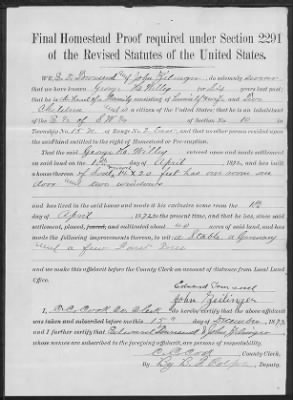 Final Homestead Proof required under Section 2291
of the Revised Statutes of the United States.
WE, E. Townsend & John Zeilinger do solemnly swear
that we have known George W. Willey for six years last past;
that he is the head of a family consisting of himself wife and two
Children and is a citizen of the United States; that he is an inhabitant
of the E ½ of S.W. ¼ of Section No. 10 in
Township No. 15 N of Range No. 2 East, and that no other person resided upon the
said land entitled to the right of Homestead or Pre-emption.
That the said George W. Willey entered upon and made settlement
on said land on the day of April , 187 , and has built
a house thereon of 14 x 20 feet has one room one
door and two windows
and has lived in the said house and made it his exclusive home from the
day of April , 1872 to the present time, and that he has, since said
settlement, plowed, fenced, and cultivated about 40 acres of said land, and has
made the following improvements thereon, to wit: a Stable, a Granary
and a few Forest Trees
and we make this affidavit before the County Clerk on account of distance from Local Land
Office.
Edward Townsend
John Zeilinger
I, C. C. Cook Co. Clerk do hereby certify that the above affidavit
was taken and subscribed before me this 15th day of December , 187
and I further certify that Edward Townsend & John Zeilinger
whose names are subscribed to the foregoing affidavit, are persons of respectability.
C. C. Cook , County Clerk,
By , Deputy.